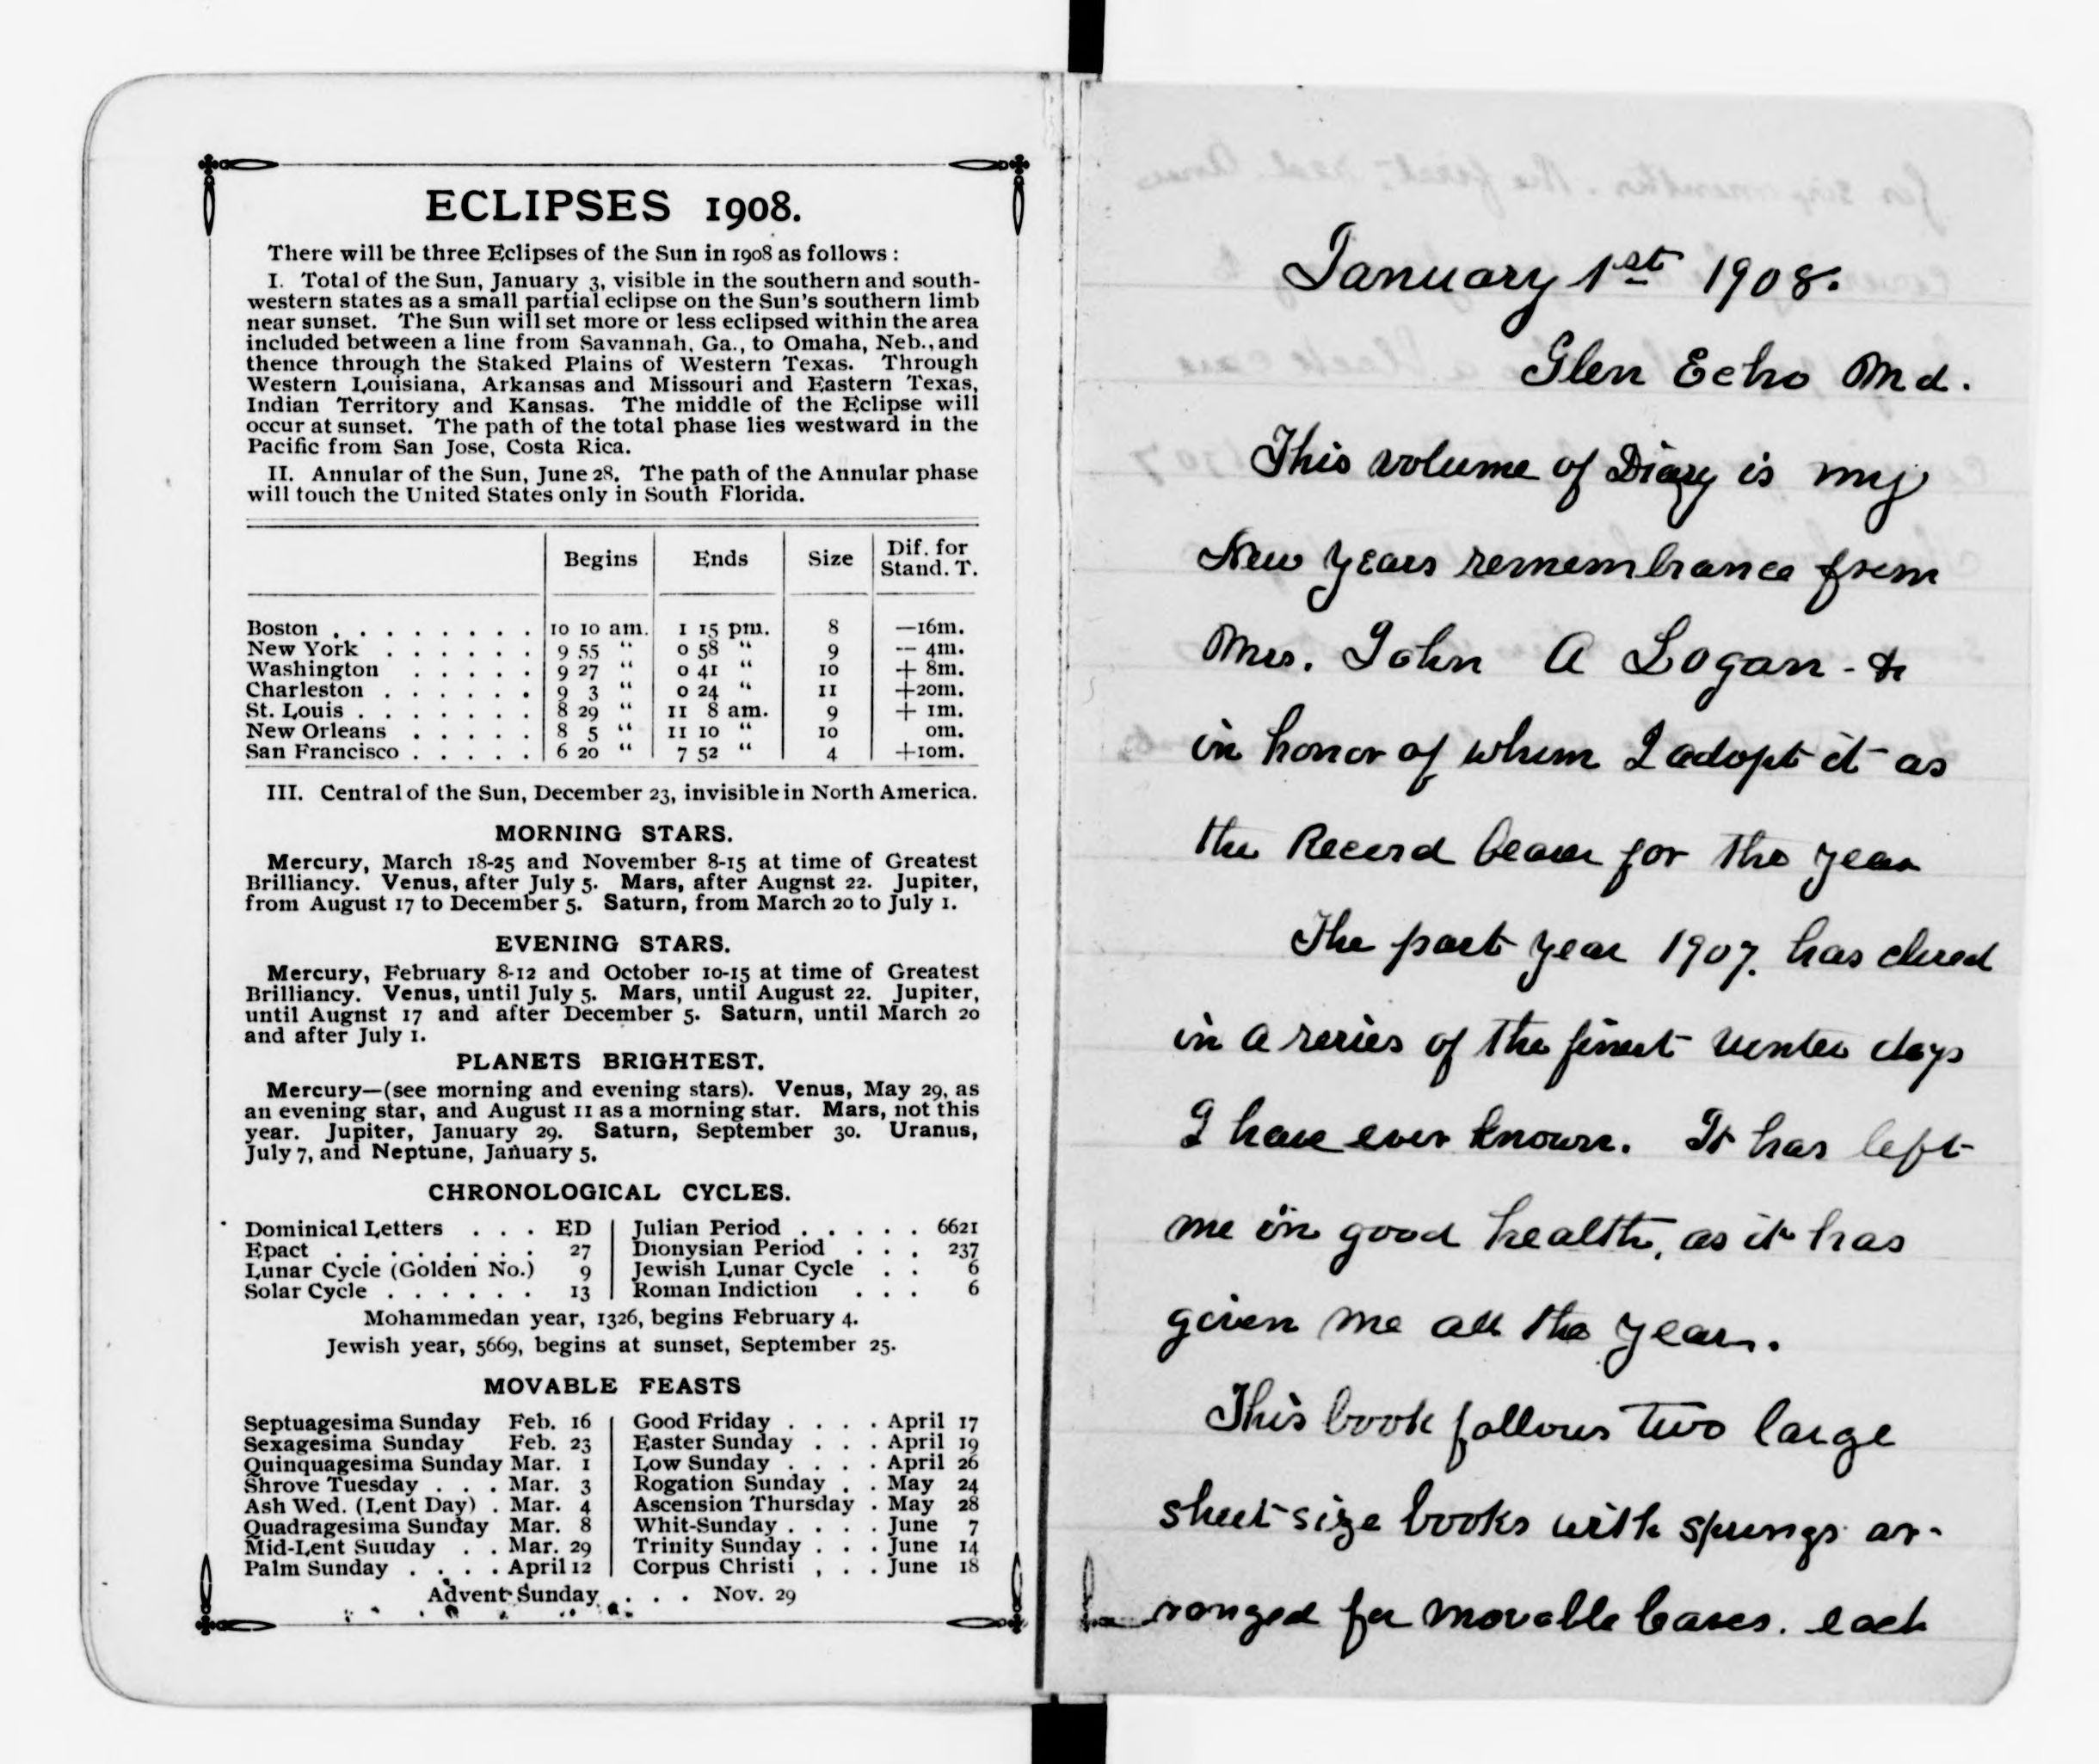 ECLIPSES 1908.
There will be three Eclipses of the Sun in 1908 as follows :
I. Total of the Sun, January 3, visible in the southern and south-
western states as a small partial eclipse on the Sun's southern limb
near sunset. The Sun will set more or less eclipsed within the area
included between a line from Savannah, Ga., to Omaha, Neb., and
thence through the Staked Plains of Western Texas. Through
Western Louisiana, Arkansas and Missouri and Eastern Texas,
Indian Territory and Kansas. The middle of the Eclipse will
occur at sunset. The path of the total phase lies westward in the
Pacific from San Jose, Costa Rica.
II. Annular of the Sun, June 28. The path of the Annular phase
will touch the United States only in South Florida.
Begins Ends Size Dif. for
Stand. T.
Boston . . . . . . . . 10 10 am. 1 15 pm. 8 —16m.
New York . . . . . . 9 55 “ 0 58 “ 9 — 4m.
Washington . . . . . 9 27 “ 0 41 “ 10 + 8m.
Charleston . . . . . . 9 3 “ 0 24 “ 11 +20m.
St. Louis . . . . . . . 8 29 “ 11 8 am. 9 + 1m.
New Orleans . . . . . 8 5 “ 11 10 “ 10 0m.
San Francisco . . . . . 6 20 “ 7 52 “ 4 +10m.
III. Central of the Sun, December 23, invisible in North America.
MORNING STARS.
Mercury, March 18-25 and November 8-15 at time of Greatest
Brilliancy. Venus, after July 5. Mars, after Augnst 22. Jupiter,
from August 17 to December 5. Saturn, from March 20 to July 1.
EVENING STARS.
Mercury, February 8-12 and October 10-15 at time of Greatest
Brilliancy. Venus, until July 5. Mars, until August 22. Jupiter,
until Augnst 17 and after December 5. Saturn, until March 20
and after July 1.
PLANETS BRIGHTEST.
Mercury—(see morning and evening stars). Venus, May 29, as
an evening star, and August 11 as a morning star. Mars, not this
year. Jupiter, January 29. Saturn, September 30. Uranus,
July 7, and Neptune, January 5.
CHRONOLOGICAL CYCLES.
Dominical Letters . . . ED Julian Period . . . . . 6621
Epact . . . . . . . . 27 Dionysian Period . . . 237
Lunar Cycle (Golden No.) 9 Jewish Lunar Cycle . . 6
Solar Cycle . . . . . . 13 Roman Indiction . . . 6
Mohammedan year, 1326, begins February 4.
Jewish year, 5669, begins at sunset, September 25.
MOVABLE FEASTS
Septuagesima Sunday Feb. 16 Good Friday . . . . April 17
Sexagesima Sunday Feb. 23 Easter Sunday . . . April 19
Quinquagesima Sunday Mar. 1 Low Sunday . . . . April 26
Shrove Tuesday . . . Mar. 3 Rogation Sunday . . May 24
Ash Wed. (Lent Day) . Mar. 4 Ascension Thursday . May 28
Quadragesima Sunday Mar. 8 Whit-Sunday . . . . June 7
Mid-Lent Suuday . . Mar. 29 Trinity Sunday . . . June 14
Palm Sunday . . . . April 12 Corpus Christi , . . June 18
Advent Sunday . . . Nov. 29
January 1st 1908.
Glen Echo Md.
This volume of Diary is my
New Years remembrance from
Mrs. John A Logan - &
in honor of whom I adopt it as
the Record bearer for the year
The past year 1907. has closed
in a series of the finest winter days
I have ever known. It has left
me in good health, as it has
given me all the year.
This book follows two large
sheet size books with springs ar-
ranged for movable leaves. each